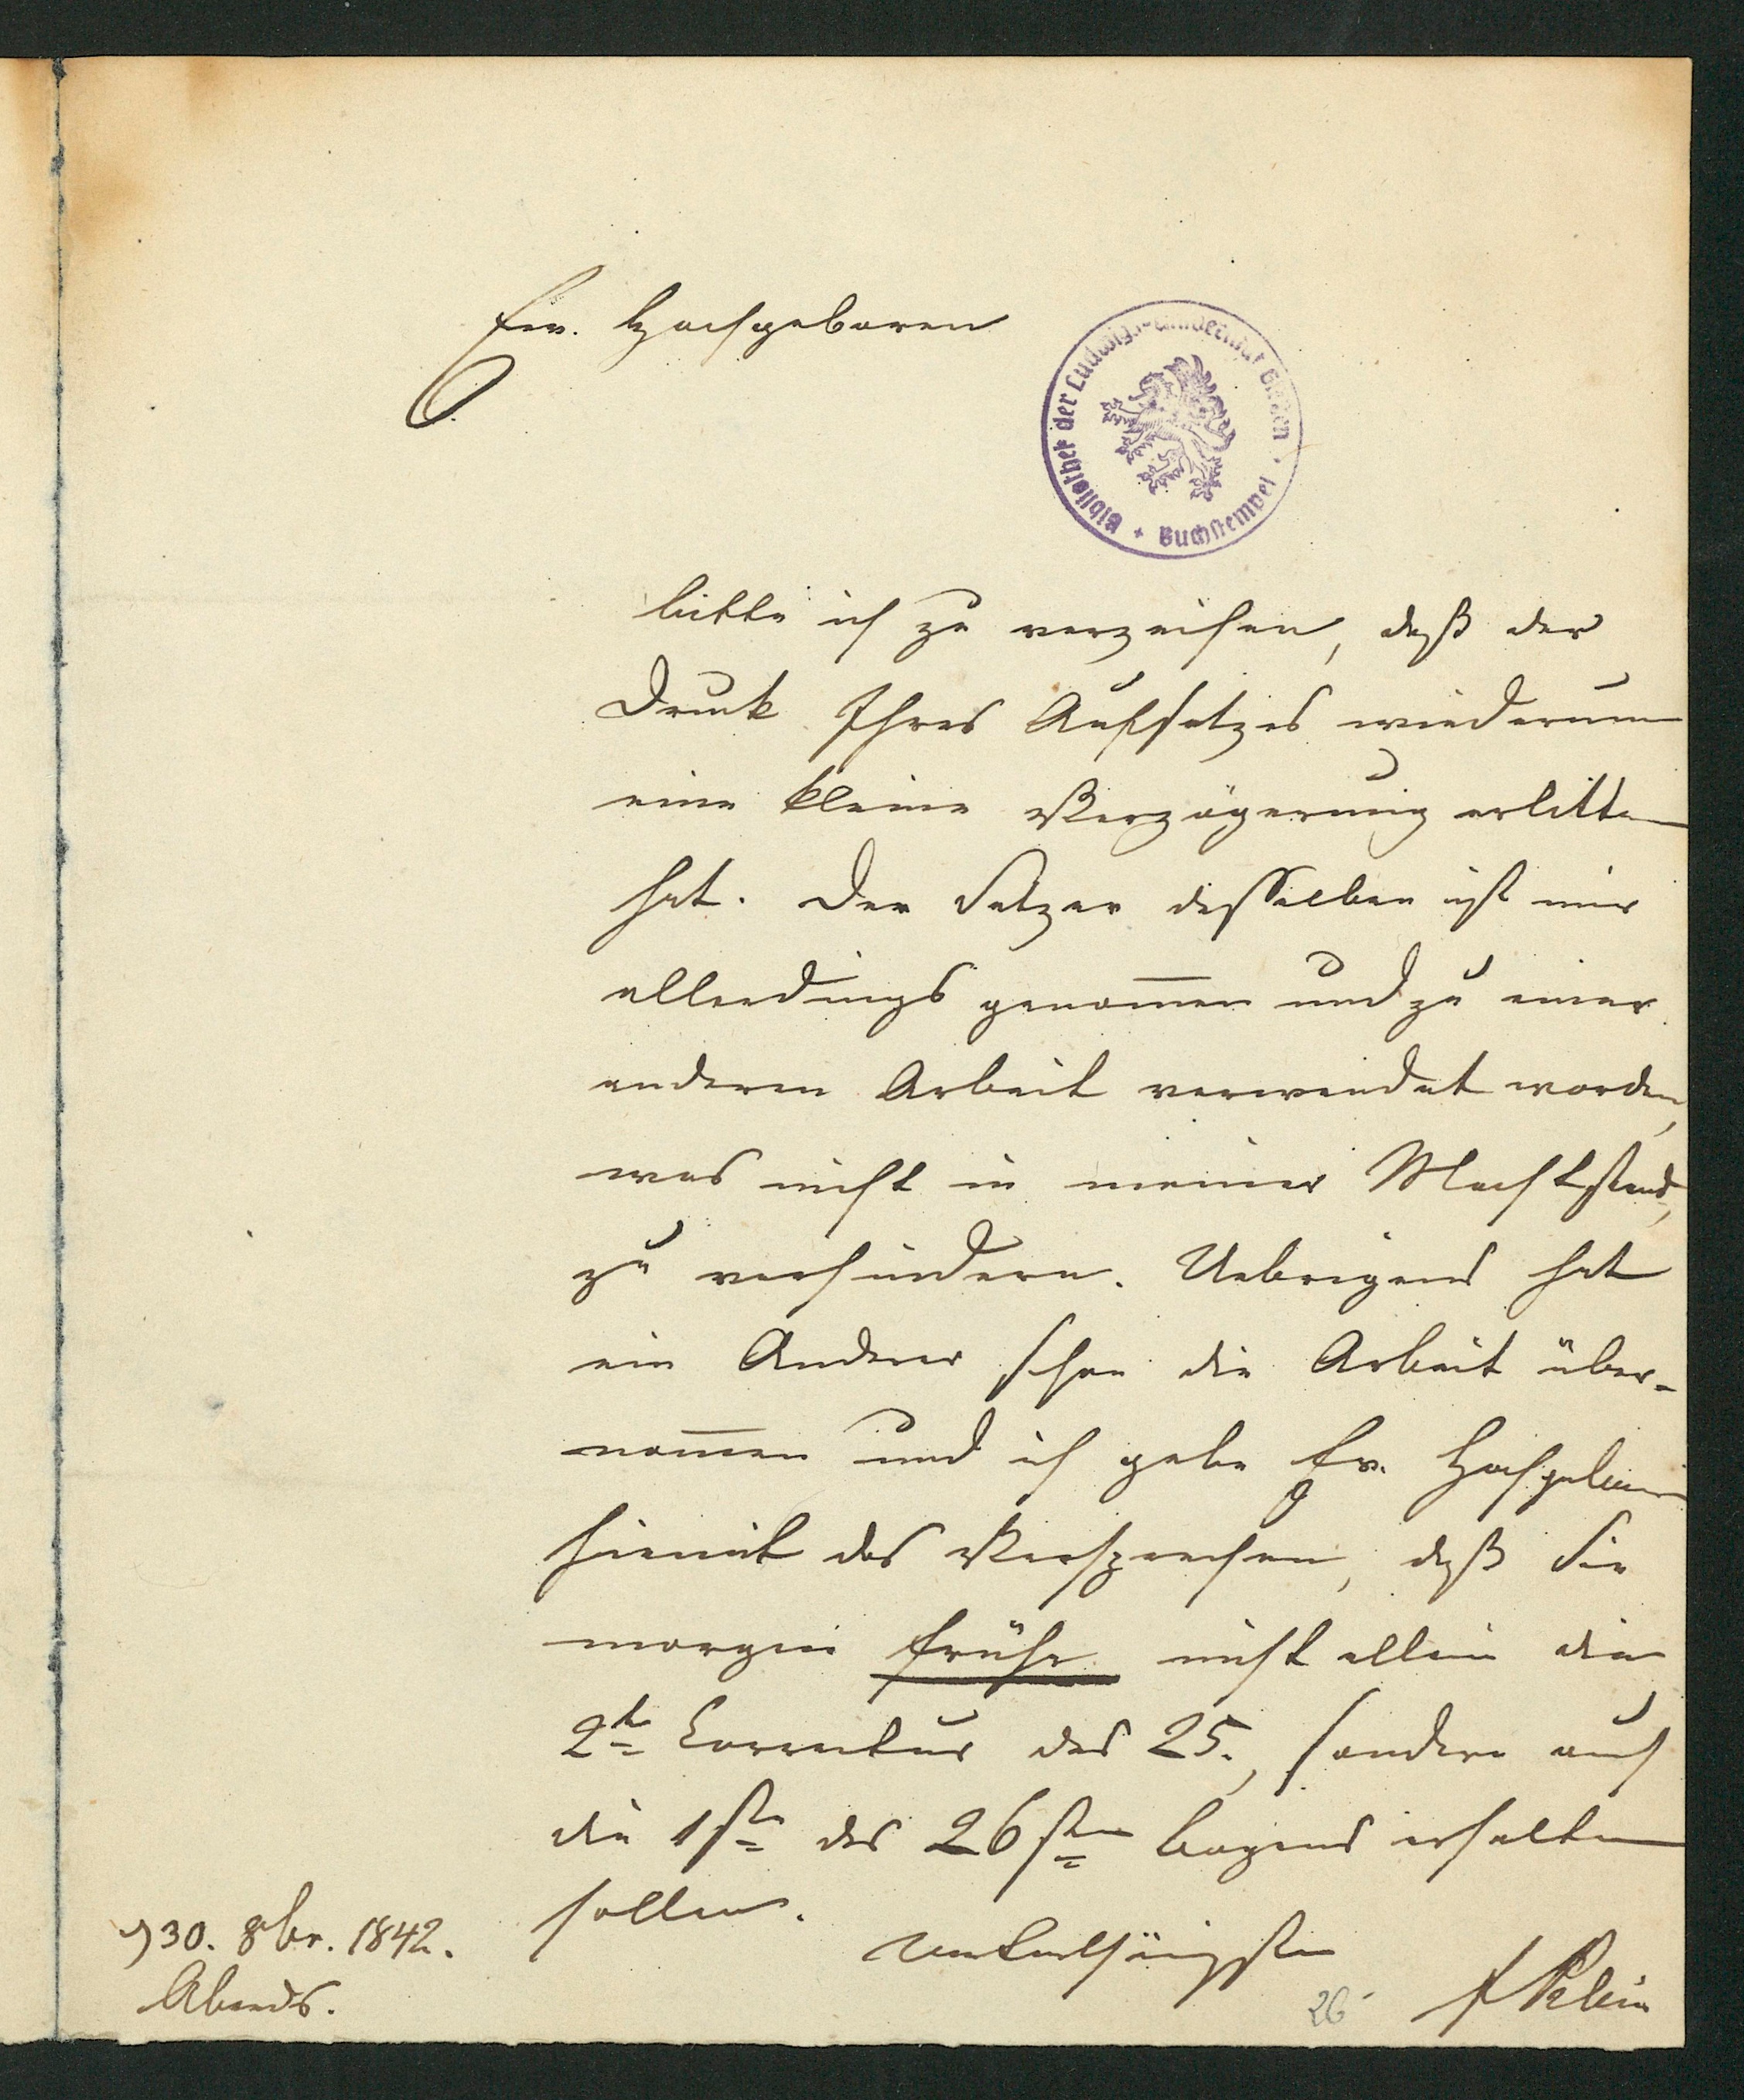 Ew. Hochgeboren
Bibliothek der Ludwigs-Universität Gießen + Buchstempel
bitte ich zu verzeihen, daß der
Druck Ihres Aufsatzes wiederum
eine kleine Verzögerung erlitten
hat. Der Setzer desselben ist mir
allerdings genom̅en und zu einer
anderen Arbeit verwendet worden,
was nicht in meiner Macht stand,
zu verhindern. Uebrigens hat
ein Anderer schon die Arbeit über-
nom̅en und ich gebe Ew. Hochgeboren
hiemit das Versprechen, daß Sie
morgen frühe nicht allein die
2te Correctur des 25., sondern auch
die 1ste des 26sten Bogens erhalten
sollen.
30. 8br. 1842.
Abends.
unterthänigster
26